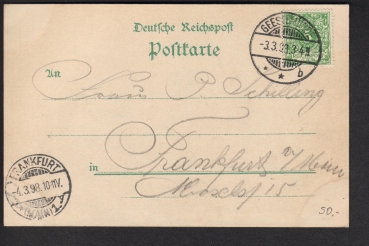 Deutsche Reichspost
Postkarte
GEESTEMÜNDE
-3.3.98.3-4N.
* * b
An
Frau P. Schilling
in Frankfurt a/Main
Moselstr 15
FRANKFURT
-4.3.98.10-11V.
(MAIN) 1
50,-